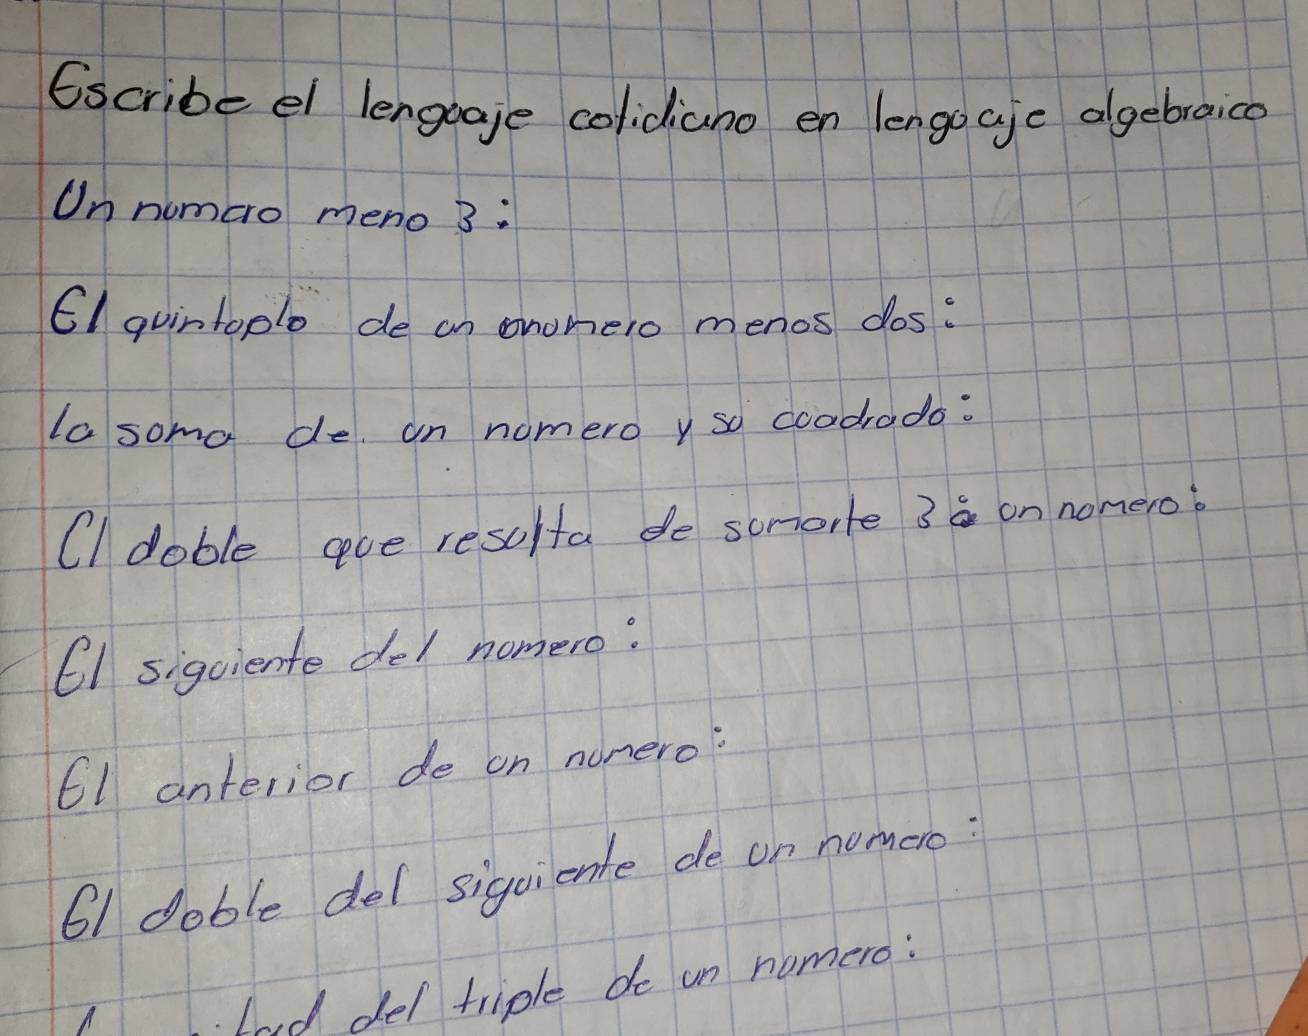 Escribe el lengoaje cotidiano en lengoaje algebraico
Un numero meno 3:
El quintoplo de un onomero menos dos:
la soma de un nomero y so coadrado:
El doble qoe resolta de somarle 3 a on nomero:
El sigoiente del nomero:
El anterior de on numero:
El doble del sigoiente de un nomero:
del triple de un nomero: